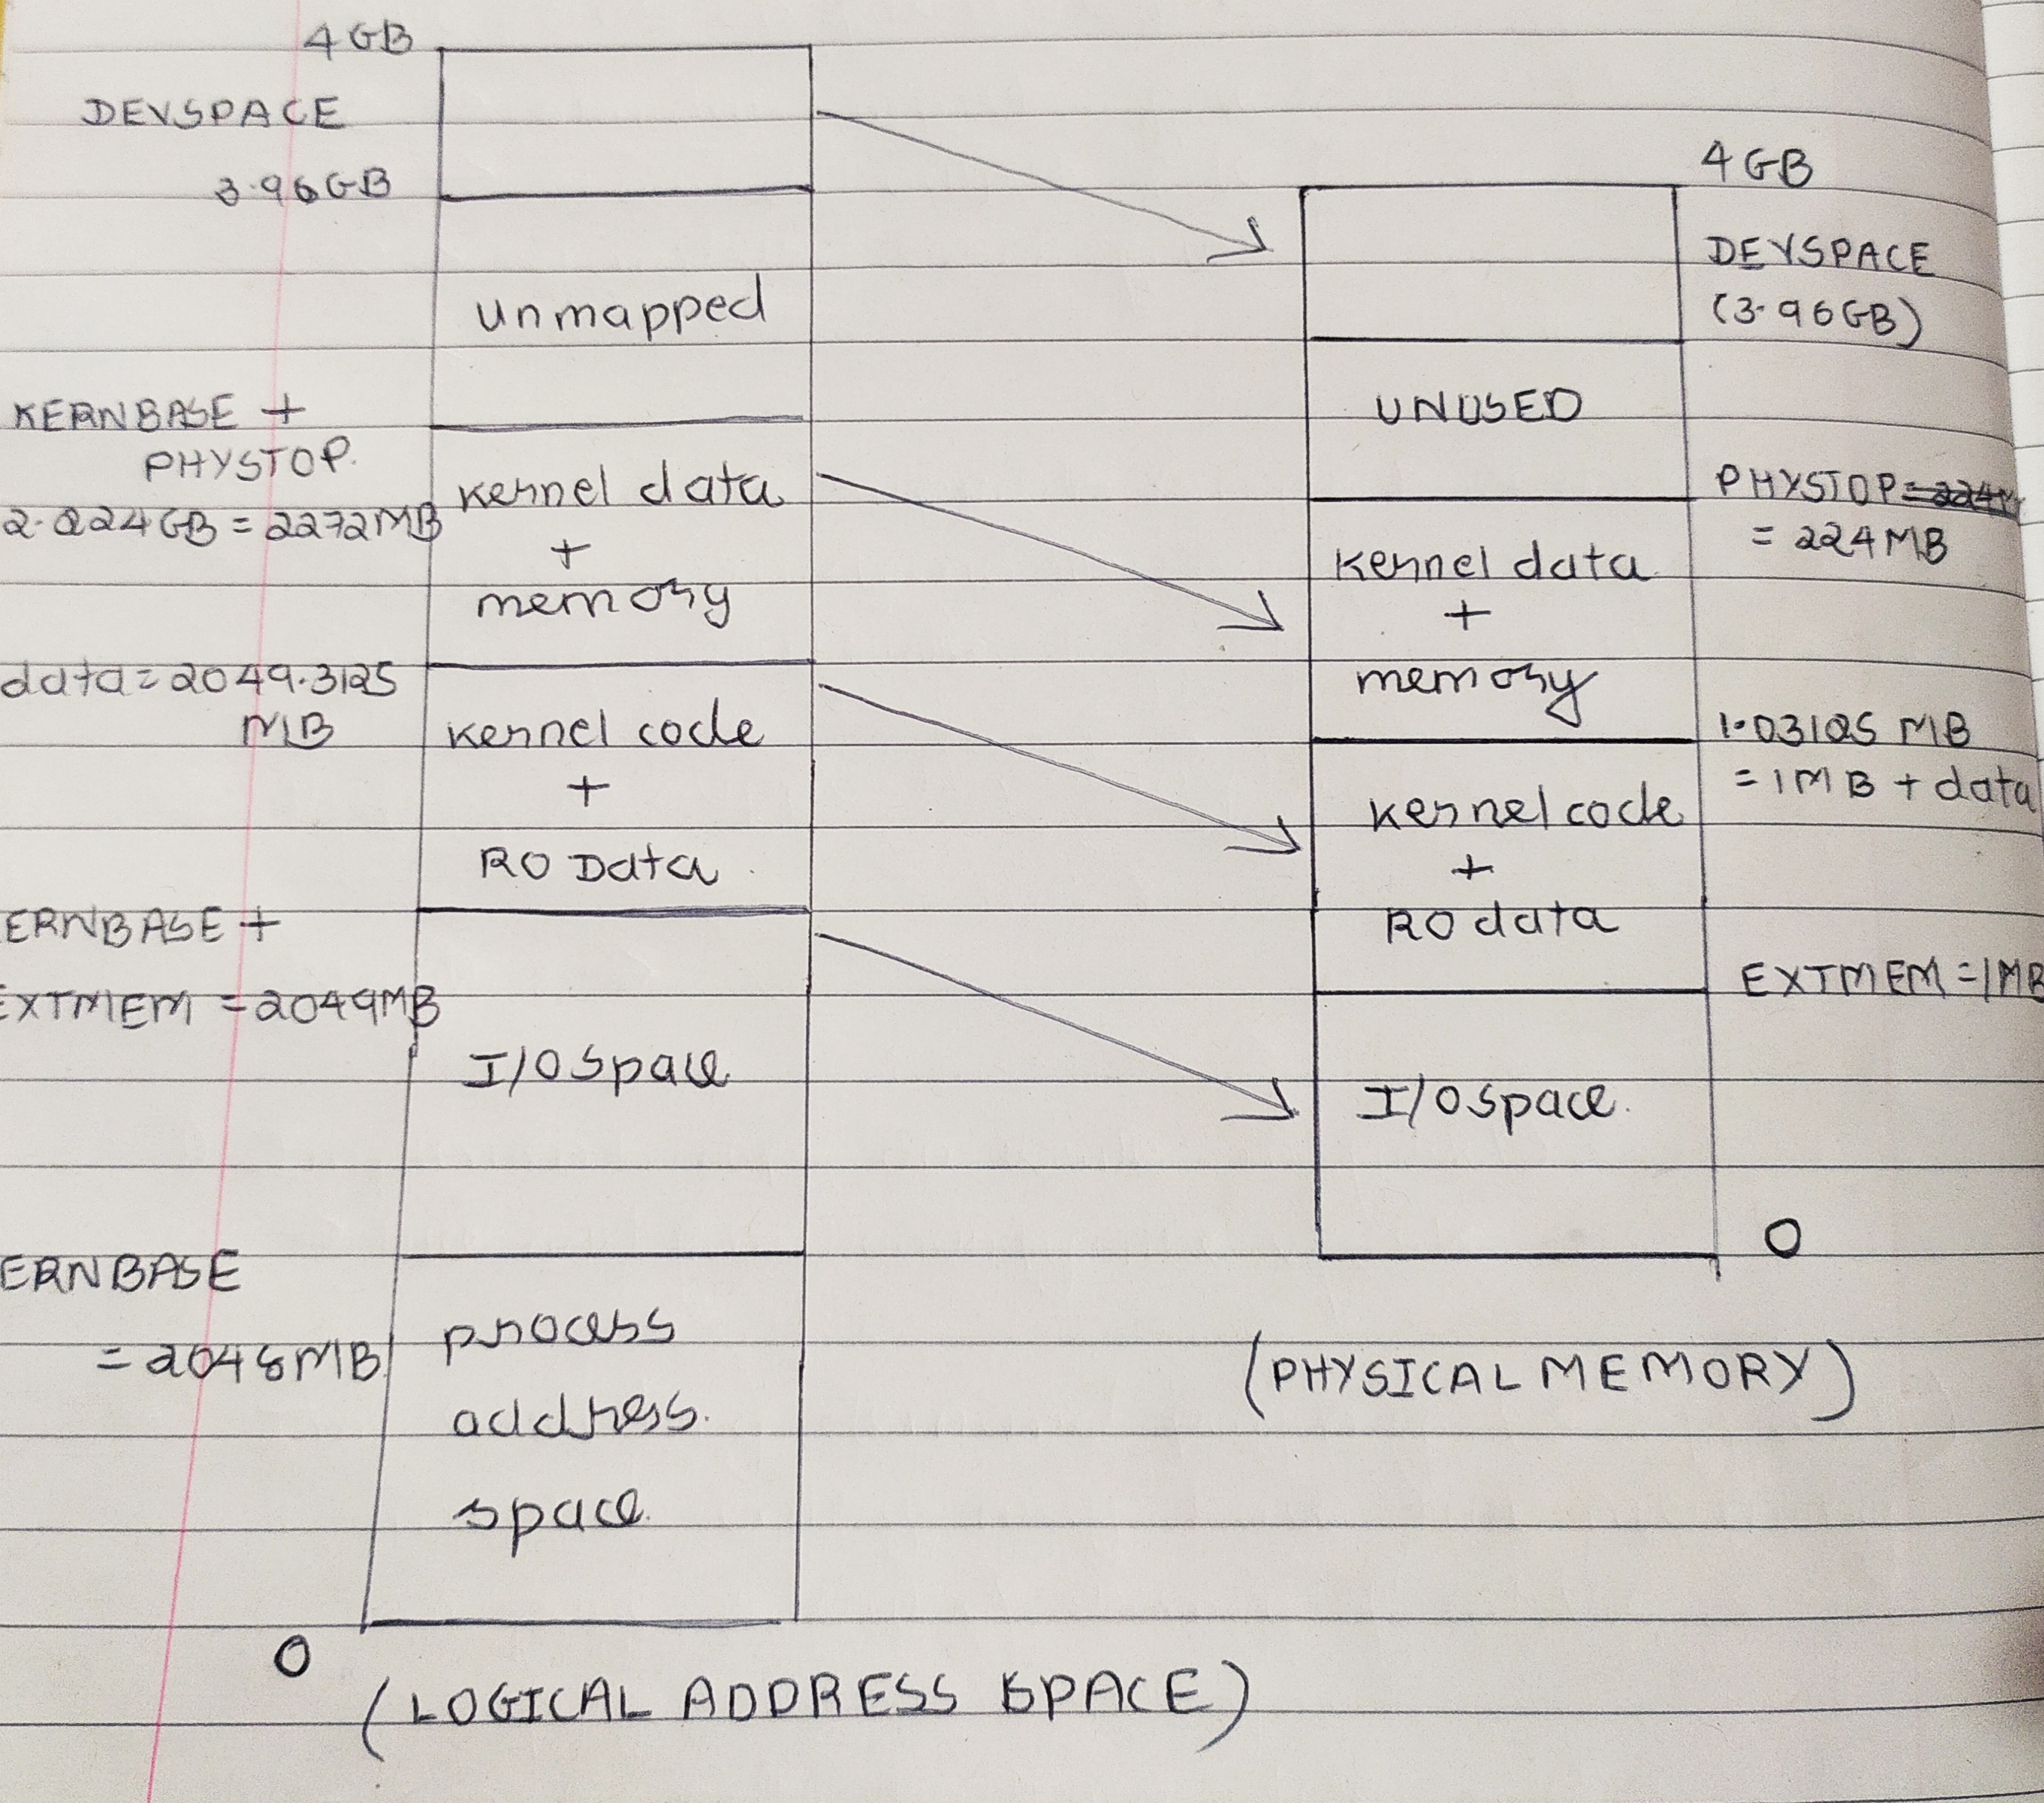 4 GB
DEVSPACE
3.96 GB
unmapped
KERNBASE +
PHYSTOP.
2.224 GB = 2272 MB
kernel data
+
memory
data = 2049.3125
MB
kernel code
+
RO Data
ERNBASE +
EXTMEM = 2049MB
I/O space
ERNBASE
= 2048MB
process
address
space
0
(LOGICAL ADDRESS SPACE)
4 GB
DEVSPACE
(3.96 GB)
UNUSED
PHYSTOP = 224M
= 224 MB
kernel data
+
memory
1.03125 MB
= 1 MB + data
kernel code
+
RO data
EXTMEM = 1MB
I/O space
0
(PHYSICAL MEMORY)